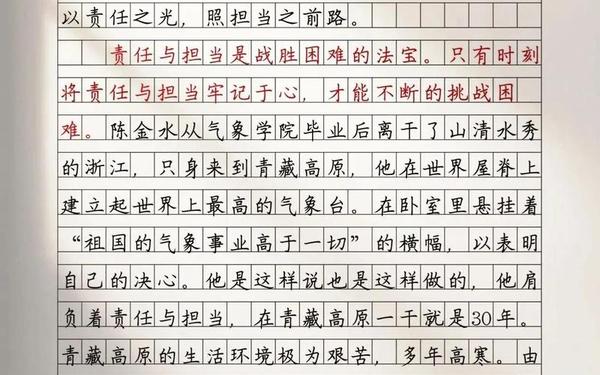 以责任之光，照担当之前路。
责任与担当是战胜困难的法宝。只有时刻
将责任与担当牢记于心，才能不断的挑战困
难。陈金水从气象学院毕业后离干了山清水秀
的浙江，只身来到青藏高原，他在世界屋脊上
建立起世界上最高的气象台。在卧室里悬挂着
“祖国的气象事业高于一切”的横幅，以表明
自己的决心。他是这样说也是这样做的，他肩
负着责任与担当，在青藏高原一干就是30年。
青藏高原的生活环境极为艰苦，多年高寒。由